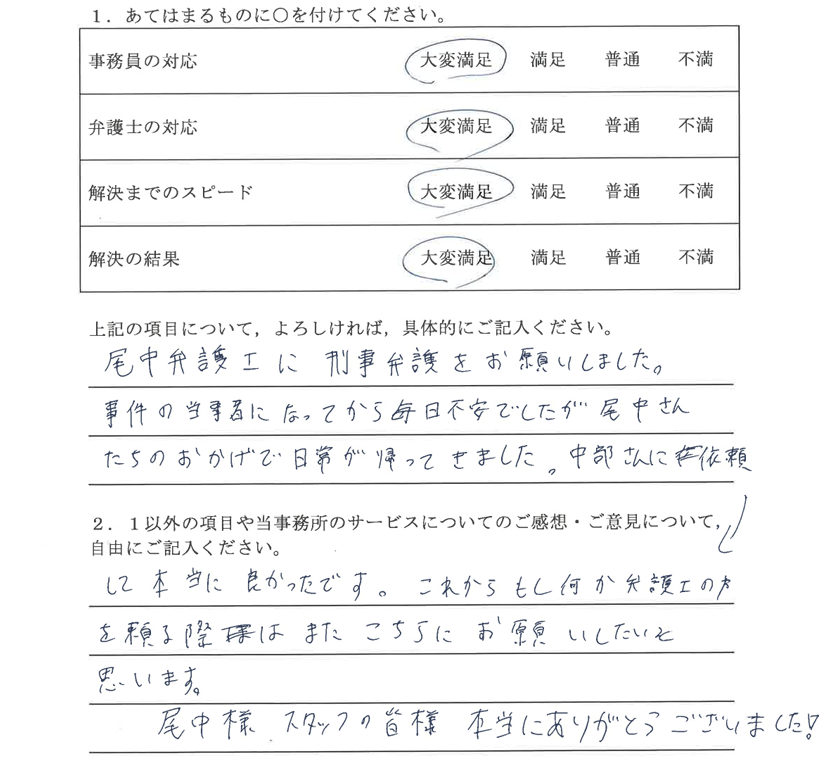 １．あてはまるものに〇を付けてください。
事務員の対応 大変満足 満足 普通 不満
弁護士の対応 大変満足 満足 普通 不満
解決までのスピード 大変満足 満足 普通 不満
解決の結果 大変満足 満足 普通 不満
上記の項目について，よろしければ，具体的にご記入ください。
尾中弁護士に 刑事弁護をお願いしました。
事件の当事者になってから毎日不安でしたが尾中さん
たちのおかげで日常が帰ってきました。中部さんに依頼
２．１以外の項目や当事務所のサービスについてのご感想・ご意見について，
自由にご記入ください。
して本当に良かったです。これからもし何か弁護士の方
を頼る際はまたこちらにお願いしたいと
思います。
尾中様 スタッフの皆様 本当にありがとうございました!